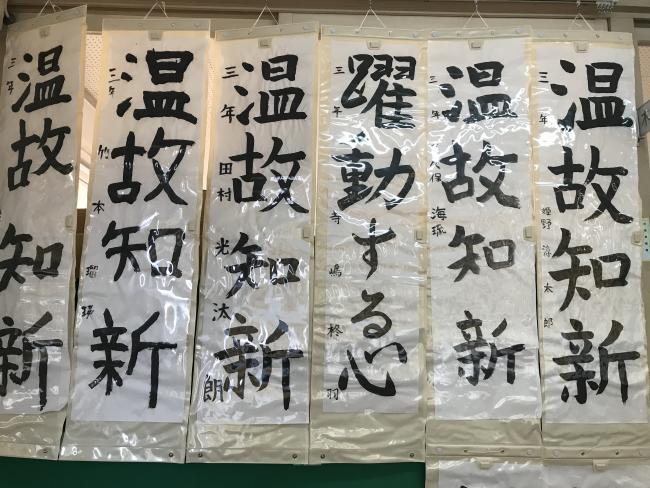 温故知新
三年 姫野 太郎
温故知新
三年 久保 海琉
躍動する心
三年 寺嶋 柊羽
温故知新
三年 田村 光汰朗
温故知新
三年 竹本
温故知新
三年